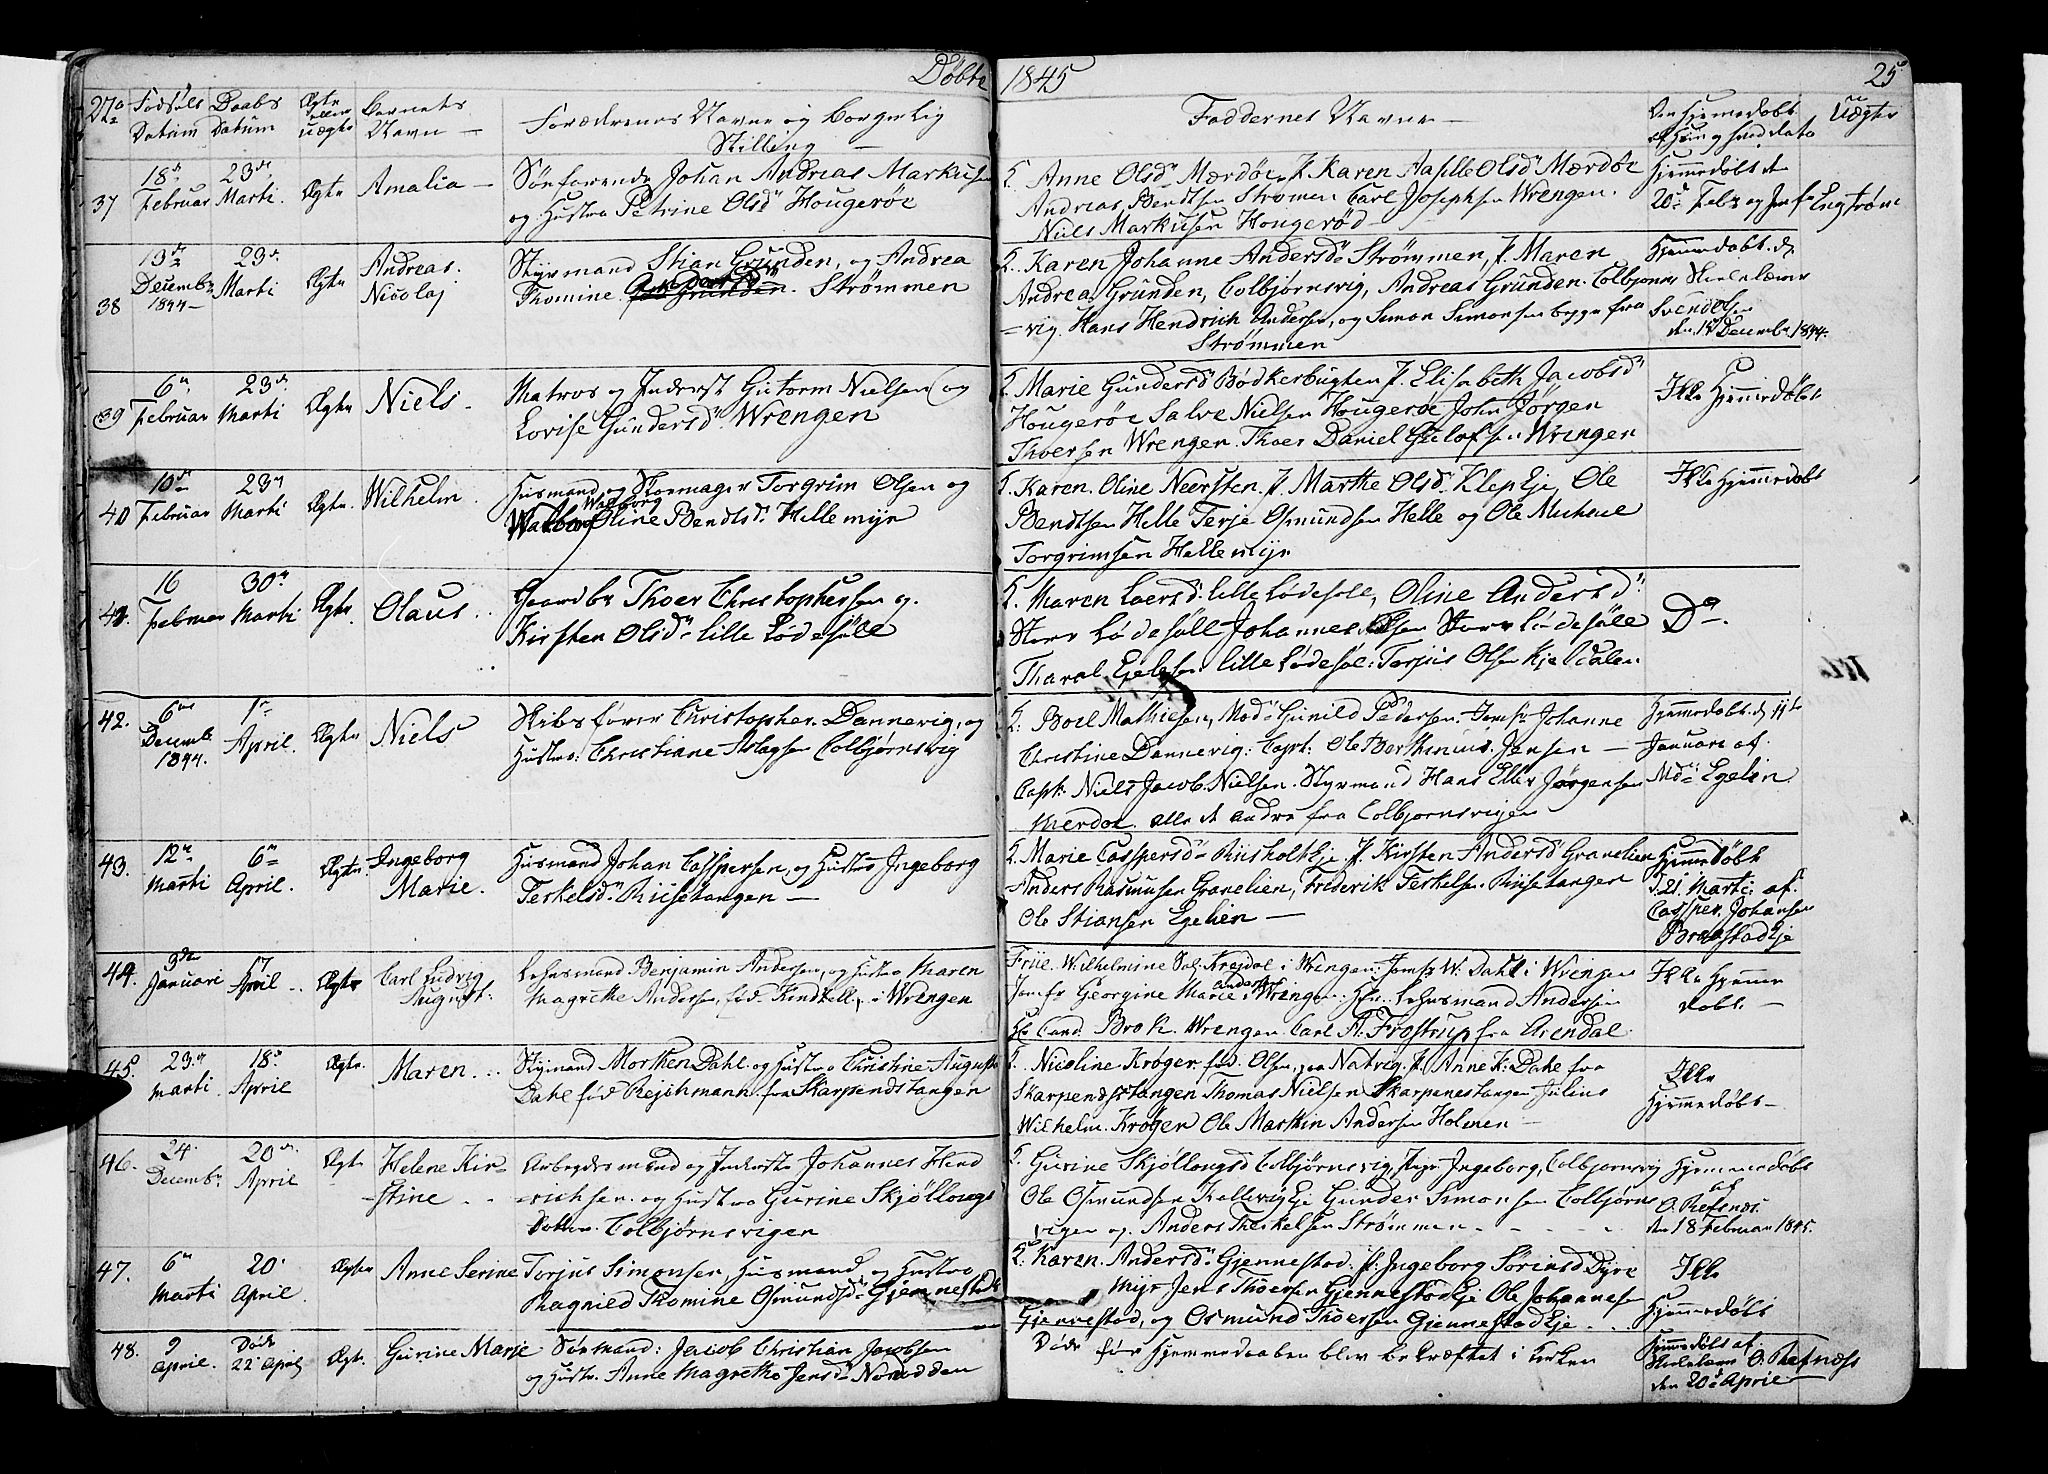 Døbte 1845 25
No Fødsels Daabs Ægte Barnets Forældrenes Navne og borgerlig Faddernes Navne Om Hjemmedøbt Uægte
Datum Datum eller uægte Navn Stilling af hvem og hvad dato
37 18de Februar 23de Marti. Ægte Amalia
Søefarende Johan Andreas Markusen
og Hustro Petrine Olsd Hougerøe
Anne Olsd Mærdøe, P. Karen Olsd Mærdøe
Andreas Bendtsen Strømen Carl Josephsen Wrengen.
Niels Markusen Hougerød
Hjemmedøbt de
20de Febr og Jomfr Engstrøm
38 13de Decembr 1844 23de Marti Ægte Andreas
Nicolaj
Styrmand Stian Grunden, og Andrea
Thomine Strømmen
Karen Johanne Andersd Strømmen, P. Maren
Andrea Grunden, Colbjørnsvig, Andreas Grunden Colbjørns
vig. Hans Hendrich Andersen, og Simon Simonsen begge fra
Strømmen
Hjemmedøbt. d
Skolelærer
Svendsen
den 15 Decembr 1844.
39 6te Februar 23de Marti Ægte Niels
Matros og Inderst Gutorm Nielsen og
Lovise Gundersd Wrengen
Marie Gundersd Bødkerbugten P. Elisabeth Jacobsd
Hougerøe Salve Nielsen Hougerøe John Jørgen
Thoersen Wrengen. Thoer Daniel Wrengen
Ikke Hjemmedøbt
40 10de Februar 23de Marti Ægte. Wilhelm
Husmand og Skomager Torgrim Olsen og
Walborg Oline Bendtsd. Hellemyr
Karen. Oline Neersten. P. Marthe Olsd. Klep Eje, Ole
Bendtsen Helle Terje Osmundsen Helle og Ole Michael
Torgrimsen Hellemyr
Ikke Hjemmedøbt
41. 16 Februar 30te Marti Ægte. Olaus
Gaardbr Thoer Christophersen og
Kirsten Olsd lille Lødesøll
Maren Laersd: lille Lødesøle, Oline Andersd:
Store Lødesøll Johannes Olsen Store Lødesøle
Tharal Egelsen lille Lødesøl: Torjus Olsen
Do.
42. 6te Decembr 1844. 1ste April. Ægte Niels
Skibsfører Christopher. Dannevig, og
Hustro: Christiane Aslagsen Colbjørnsvig
Boel Mathiesen, Mad Gunild Pedersen. Jomfr Johanne
Christine Dannevig: Capt: Ole Berthinius. Jensen
Capt: Niels Jacob Nielsen. Styrmand Hans Eller Jørgensen
Merdøe. alle de andre fra Colbjørnsvigen
Hjemmedøbt. d 11te
Januari af.
Md Egelin
43. 12te Marti 6te April. Ægte. Ingeborg
Marie.
Husmand Johan Casspersen, og Hustro Ingeborg
Terkelsd Riisetangen
Marie Casspersd Riisholt Eje P. Kirsten Andersd Granelien
Anders Rasmusen Granelien, Frederik Terkelsen Riisetangen
Ole Stiansen Egelien
Hjemmedøbt
d. 21. Marti af.
Casper. Johansen
Braastad Eje
44. 3de Januari 17 April Ægte Carl Ludvig
August:
Lehnsmand Benjamin Andersen, og Hustro Maren
Magrethe Andersen, fød i Wrengen
Frue. Wilhelmine i Wrengen: Jomfr W. Dahl i Wrengen
Jomfr Georgine Marie Andersen i Wrengen. Hr. Lehnsmand Andersen
Hr Cand. Brok. Wrengen. Carl A: Frostrup fra Arendal.
Ikke Hjemme
døbt.
45. 23de Marti. 18de April Ægte. Maren
Stymand Morthen Dahl. og Hustro Christine Augusta
Dahl fød Rejchmann. fra Skarpendstangen
Nicoline Krøger. fød. Olsen, paa Natvig. P. Anne K: Dahl fra
Skarpendstangen Thomas Nielsen Skarpenestangen Julius
Wilhelm. Krøger Ole Marthin Andersen Holmen
Ikke
Hjemmedøbt
46. 24. Decembr 20de April Ægte Helene Kir
stine
Arbejdsmand og Inderst Johannes Hend
richsen. og Hustro Gurine Skjøllougs
Datter. Colbjørnsvigen
Gurine Skjøllougsd Colbjørnsvig, Pige Ingeborg, Colbjørnsvig
Ole Osmundsen Kallevig Eje Gunder Simonsen Colbjørns
vigen og. Anders Therkelsen Strømmen
Hjemmedøbt
af
O. Refsnes.
den 18 Februari 1845.
47. 6te Marti 20. April. Ægte Anne Serine
Torjus Simonsen, Husmand og Hustro
Ragnild Thomine Osmundsd Gjennestad
Karen. Andersd Gjennestad: P. Ingeborg Sørinsd Dyre
Myr Jens Thoersen Gjennestad Eje Ole Johannesen
Gjennestad, og Osmund Thoersen Gjennestad Eje
Ikke
Hjemmedøbt
48. 9 April. Døde 22de April Ægte. Gurine Marie
Sørmand: Jacob Christian Jacobsen
og Hustr. Anne Magrethe Jensd Narodden
Døde før Hjemmedaaben blev bekræftet i Kirken
Hjemmedøbt af
Skolelærer O. Refnæss
den 20de April